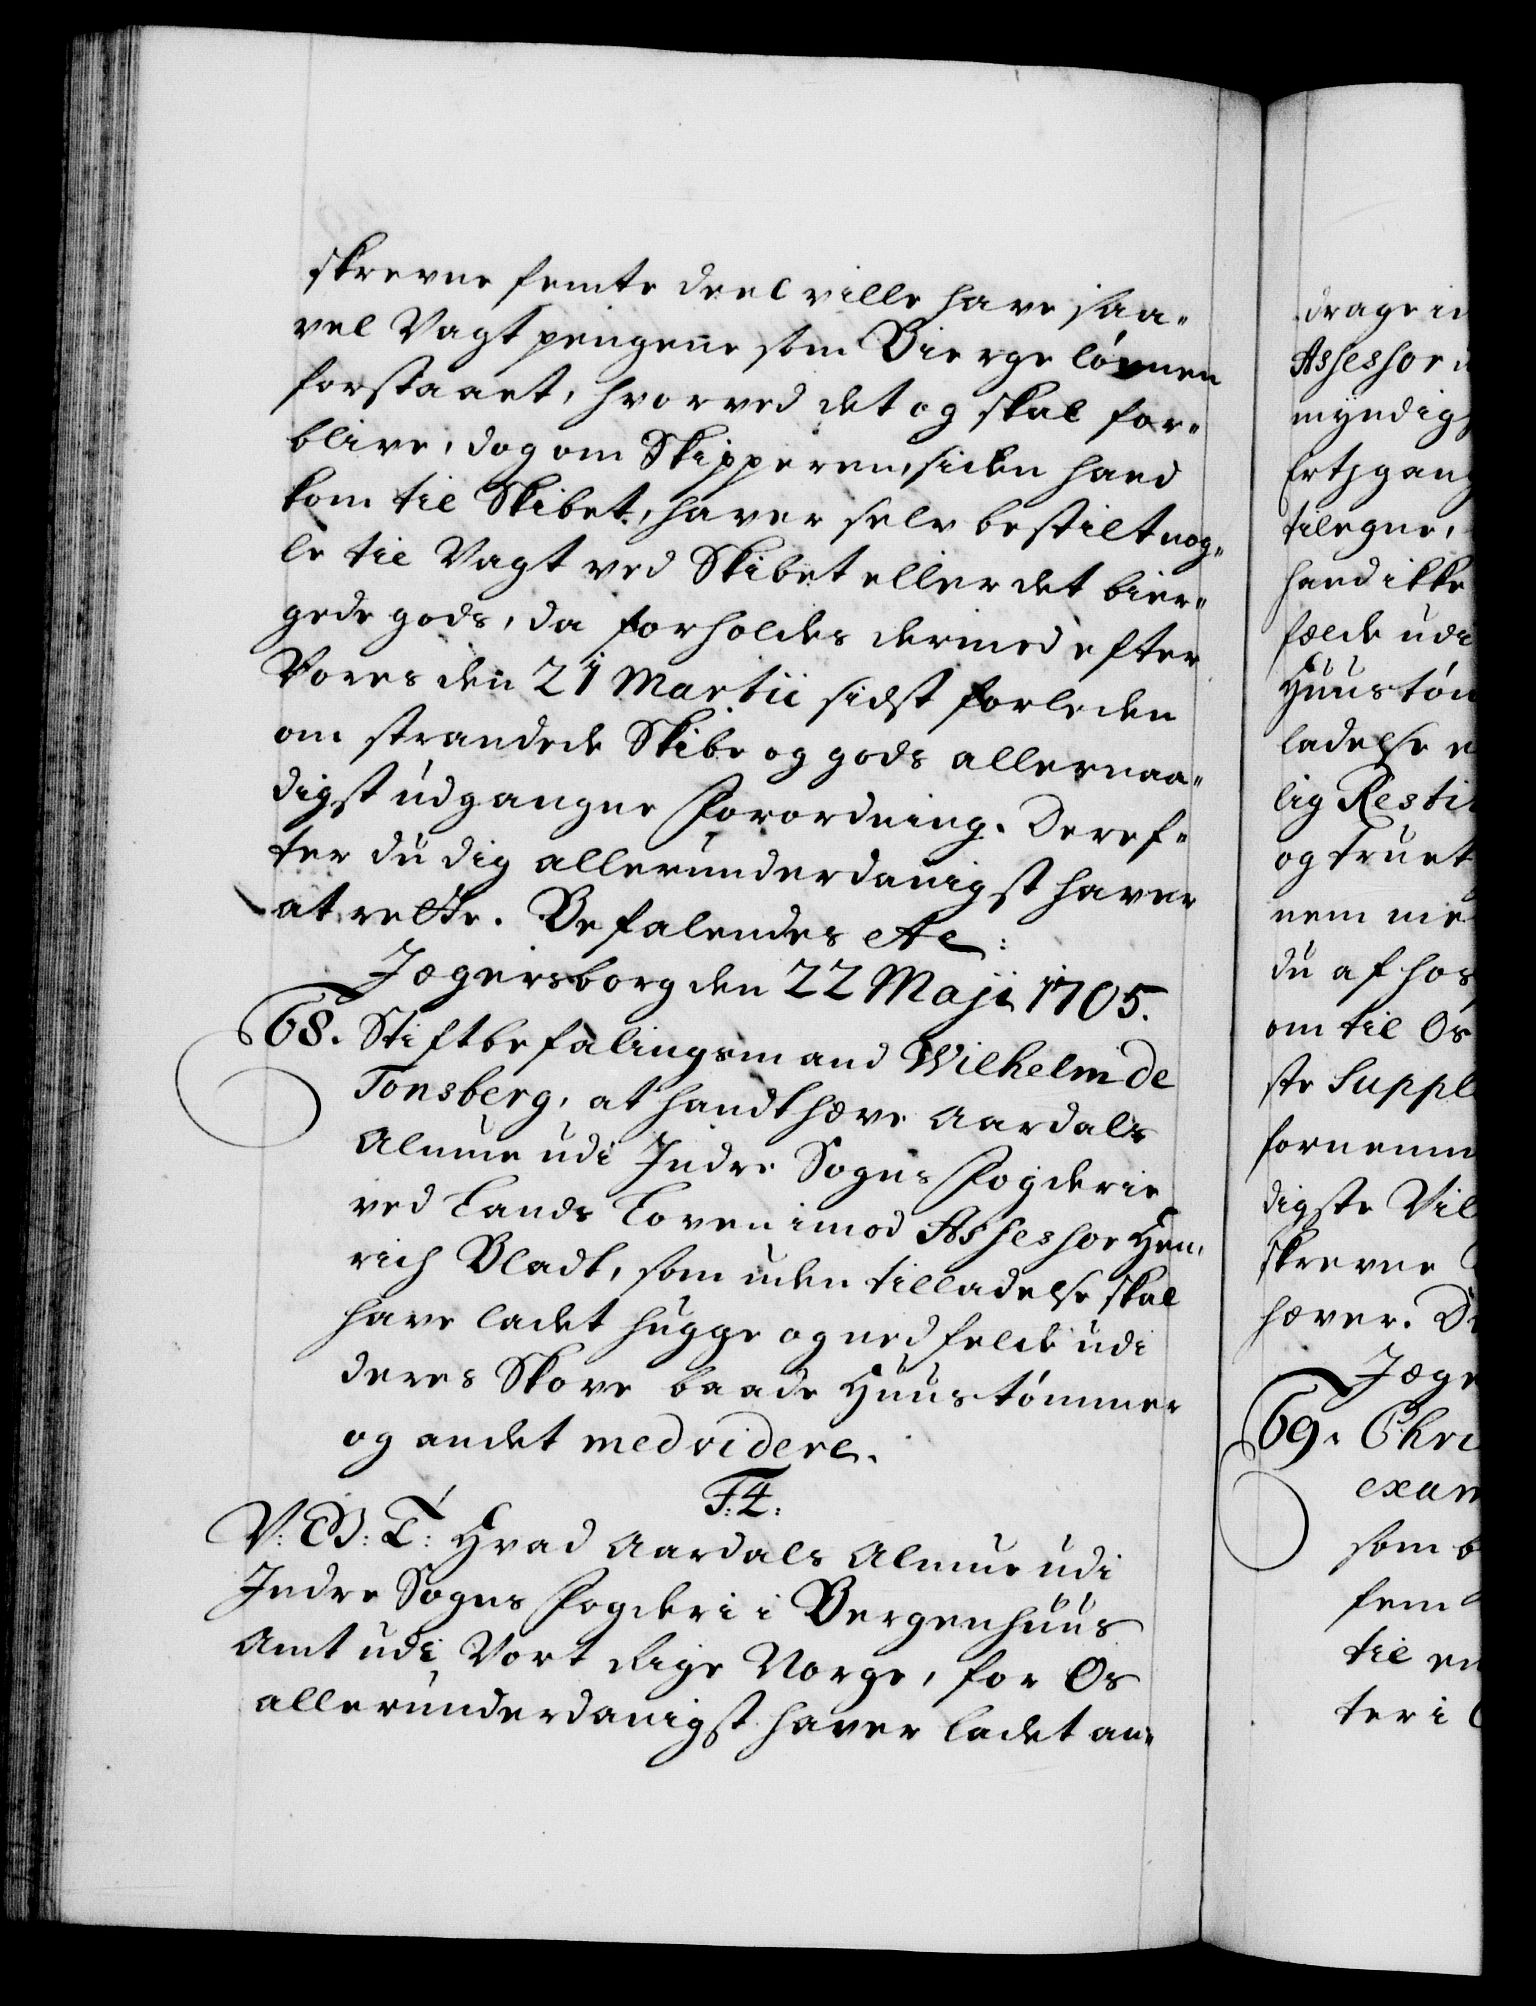 skrevne femte deel ville have saa-
vel Vagtpengene som Bierge lønnen
forstaaet, hvorved det og skal for-
blive, dog om Skipperen, siden hand
kom til Skibet, haver selv bestilt nog-
le til Vagt ved Skibet eller det bier-
gede gods, da forholdes dermed efter
Vores den 21 Martii sidst forleden
om strandede Skibe og gods allernaa-
digst udgangne Forordning. Deref-
ter du dig allerunderdanigst haver
at rette. Befalendes etc:
Jægersborg den 22 Maji 1705.
68. Stiftbefalingsmand Wilhelm de
Tonsberg, at handthæve Aardals
Almue udi Indre Sogns Fogderie
ved Lands Loven imod Assessor Hen-
rich Bladt, som uden tilladelse skal
have ladet hugge og nedfelde udi
deres Skove baade Huustømmer
og andet med videre.
F: 4:
V: G: T: Hvad Aardals Almue udi
Indre Sogns Fogderi i Bergenhuus
Amt udi Vort Rige Norge, for Os
allerunderdanigst haver ladet an-
drage i
Assessor
myndig
tilegne,
hand ikke
fælde udi
Huustøm
ladelse
lig Resti
og truet
nem
du af hos
om til Os
ste Suppl
fornemm
digste Vil
skrevne
hæver. D
Jæge
69. Chri
exam
som
fem
til en
ter i